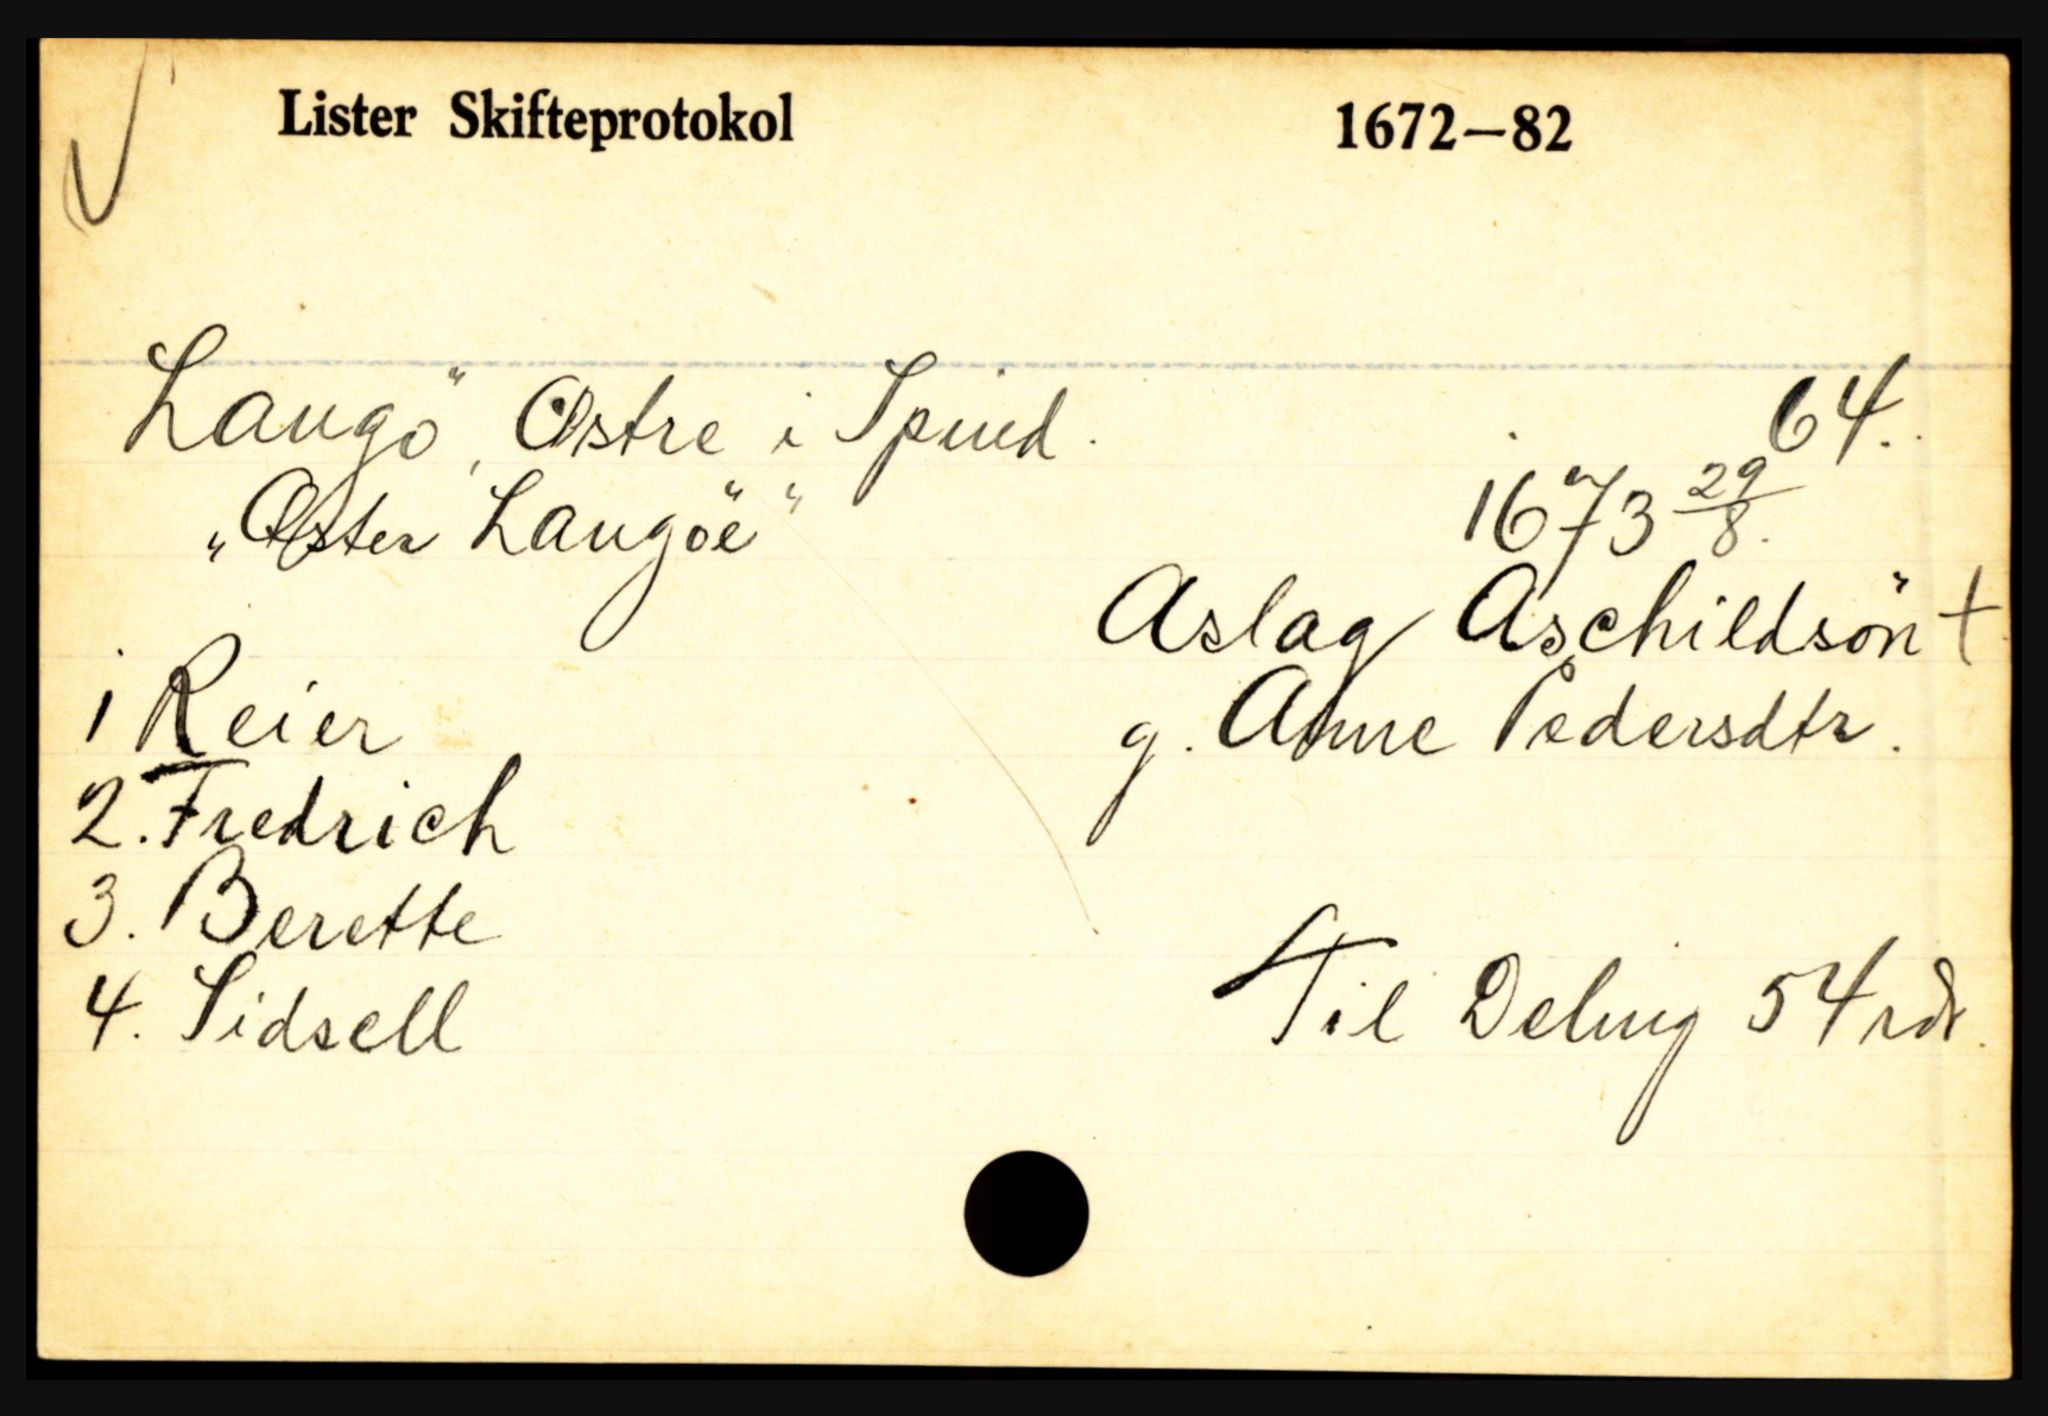 Lister Skifteprotokol 1672–82
Langö, Østre i Spind. 64.
„Øster Langöe" 1673 29/8.
Aslag Aschildsön †
1 Reier g. Anne Pedersdtr.
2. Fredrich
3. Berette
4. Sidsell Til Deling 54 rdr.